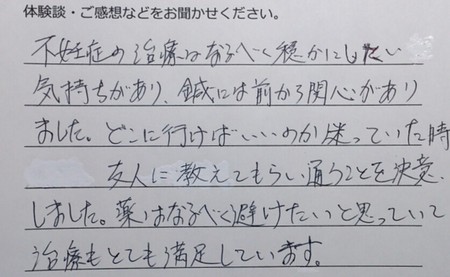 体験談・ご感想などをお聞かせください。
不妊症の治療はなるべく穏かにしたい
気持ちがあり、鍼には前から関心があり
ました。どこに行けばいいのか迷っていた時
友人に教えてもらい通うことを決意
しました。薬はなるべく避けたいと思っていて
治療もとても満足しています。